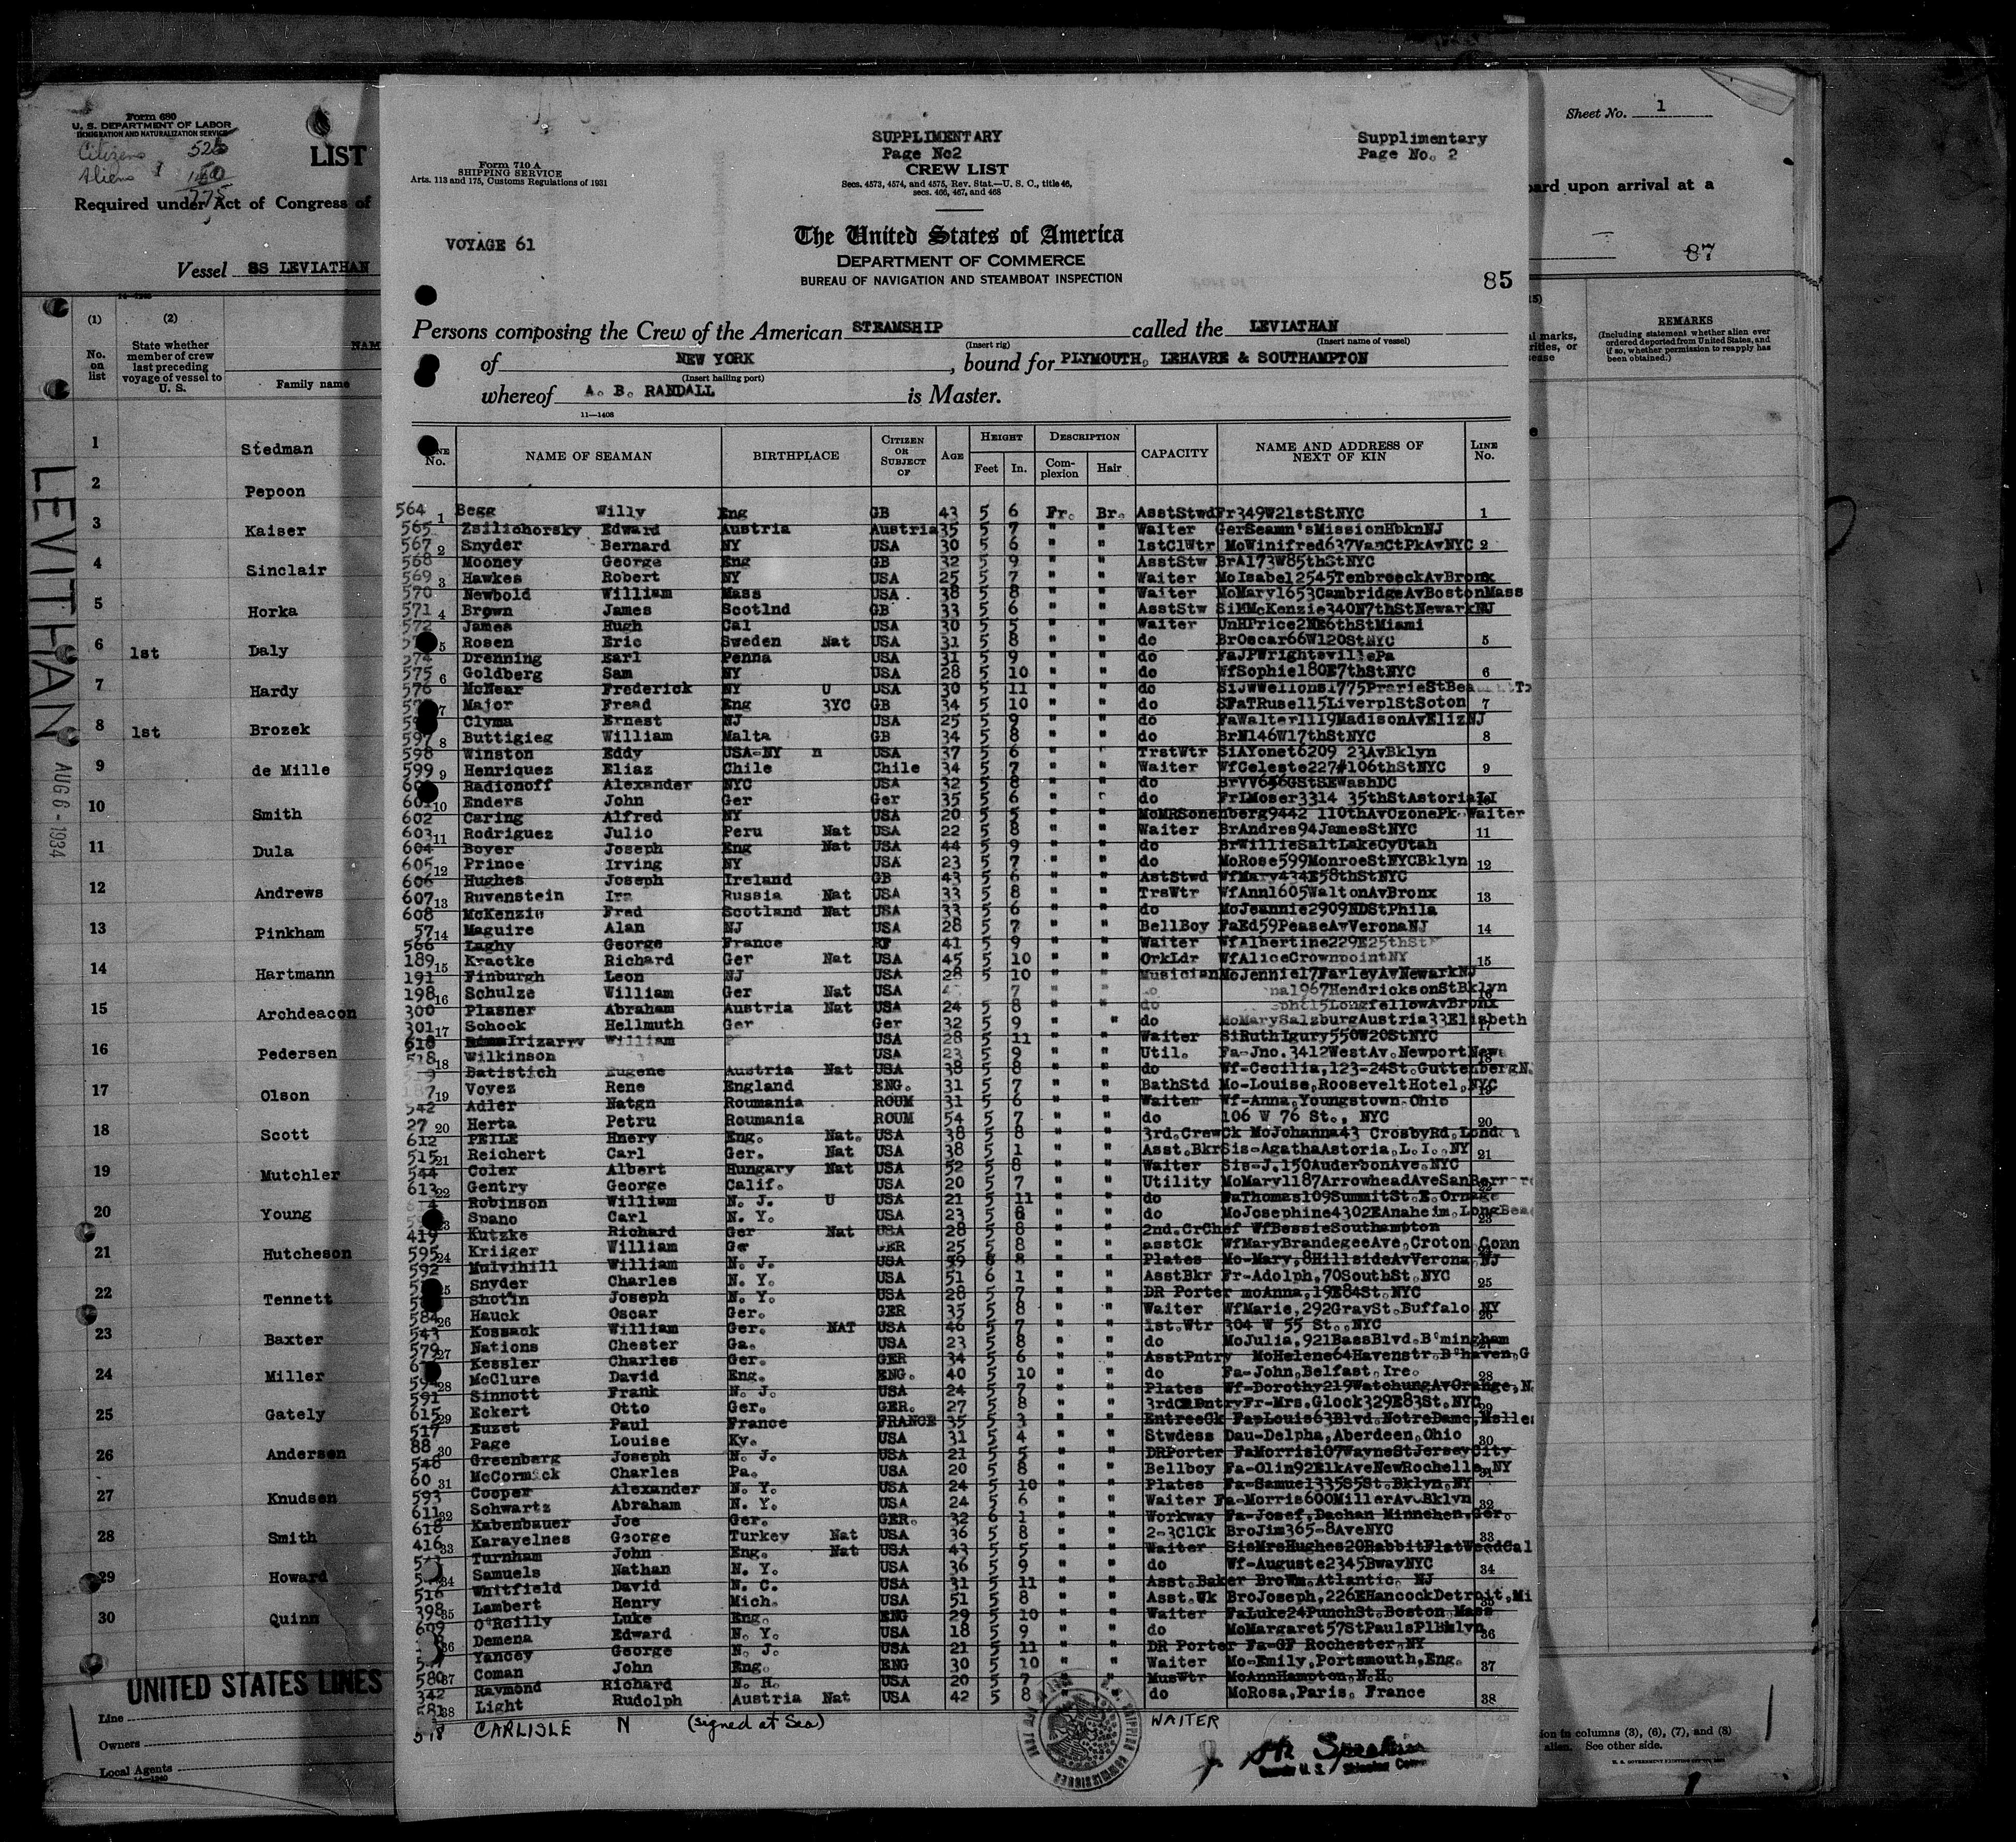 Form 680
U. S. DEPARTMENT OF LABOR
IMMIGRATION AND NATURALIZATION SERVICE
Citizens 525
Aliens
775
LIST
Required under Act of Congress of
Vessel SS LEVIATHAN
(1) (2)
No. on list
State whether member of crew last preceding voyage of vessel to U. S.
NAM
Family name
1 Stedman
2 Pepoon
3 Kaiser
4 Sinclair
5 Horka
6 1st Daly
7 Hardy
8 1st Brozek
9 de Mille
10 Smith
11 Dula
12 Andrews
13 Pinkham
14 Hartmann
15 Archdeacon
16 Pedersen
17 Olson
18 Scott
19 Mutchler
20 Young
21 Hutcheson
22 Tennett
23 Baxter
24 Miller
25 Gately
26 Andersen
27 Knudsen
28 Smith
29 Howard
30 Quinn
LEVITHAN
AUG 6 - 1934
UNITED STATES LINES
Line
Owners
Local Agents
SUPPLIMENTARY
Page No2
Supplimentary
Page No. 2
Form 710 A
SHIPPING SERVICE
Arts. 113 and 175, Customs Regulations of 1931
CREW LIST
Secs. 4573, 4574, and 4575, Rev. Stat.—U. S. C., title 46,
secs. 466, 467, and 468
VOYAGE 61
The United States of America
DEPARTMENT OF COMMERCE
BUREAU OF NAVIGATION AND STEAMBOAT INSPECTION
85
Persons composing the Crew of the American STEAMSHIP called the LEVIATHAN
(Insert rig) (Insert name of vessel)
of NEW YORK, bound for PLYMOUTH, LEHAVRE & SOUTHAMPTON
(Insert hailing port)
whereof A. B. RANDALL is Master.
11—1408
No. NAME OF SEAMAN BIRTHPLACE CITIZEN OR SUBJECT OF AGE HEIGHT Feet In. DESCRIPTION Complexion Hair CAPACITY NAME AND ADDRESS OF NEXT OF KIN LINE No.
564 1 Begg Willy Eng GB 43 5 6 Fr. Br. AsstStwd Fr349W21stStNYC 1
565 Zsilichorsky Edward Austria Austria 35 5 7 " " Waiter GerSeamn'sMissionHbknNJ
567 2 Snyder Bernard NY USA 30 5 6 " " 1stClWtr MoWinifred637VanCtPkAvNYC 2
568 Mooney George Eng GB 32 5 9 " " AsstStw BrAl73W85thStNYC
569 3 Hawkes Robert NY USA 25 5 7 " " Waiter MoIsabel2545TenbroeckAvBronx
570 Newbold William Mass USA 38 5 8 " " Waiter MoMary1653CambridgeAvBostonMass
571 4 Brown James Scotlnd GB 33 5 6 " " AsstStw SiMMcKenzie340N7thStNewarkNJ
572 James Hugh Cal USA 30 5 5 " " Waiter UnHPrice2NE6thStMiami
5 Rosen Eric Sweden Nat USA 31 5 8 " " do BrOscar66W120StNYC 5
574 Drenning Earl Penna USA 31 5 9 " " do FaJPWrightsvillePa
575 6 Goldberg Sam NY USA 28 5 10 " " do WfSophie180E7thStNYC 6
576 McNear Frederick NY U USA 30 5 11 " " do
7 Major Fread Eng 3YC GB 34 5 10 " " do SFaTRusell5LiverplStSoton 7
Clyma Ernest NJ USA 25 5 9 " " do FaWalter1119MadisonAvElizNJ
597 8 Buttigieg William Malta GB 34 5 8 " " do BrN146W17thStNYC 8
598 Winston Eddy USA-NY n USA 37 5 6 " " TrstWtr SiAYonet6209 23AvBklyn
599 9 Henriquez Eliaz Chile Chile 34 5 7 " " Waiter WfCeleste227#106thStNYC 9
Radionoff Alexander NYC USA 32 5 8 " " do BrVV646GStSEWashDC
601 10 Enders John Ger Ger 35 5 6 " " do FrLMoser3314 35thStAstoriaLI
602 Caring Alfred NY USA 20 5 5 " " MoMRSonenberg9442 110thAvOzonePk Waiter
603 11 Rodriguez Julio Peru Nat USA 22 5 8 " " Waiter BrAndres94JamesStNYC 11
604 Boyer Joseph Eng Nat USA 44 5 9 " " do BrWillieSaltLakeCyUtah
605 12 Prince Irving NY USA 23 5 7 " " do MoRose599MonroeStNYCBklyn 12
606 Hughes Joseph Ireland GB 43 5 6 " " AstStwd WfMary434E58thStNYC
607 13 Ruvenstein Ira Russia Nat USA 33 5 8 " " TrsWtr WfAnn1605WaltonAvBronx 13
608 McKenzie Fred Scotland Nat USA 33 5 6 " " do MoJeannie2909NDStPhila
57 14 Maguire Alan NJ USA 28 5 7 " " BellBoy FaEd59PeaseAvVeronaNJ 14
566 Laghy George France RF 41 5 9 " " Waiter WfAlbertine229E25thSt
189 15 Kractke Richard Ger Nat USA 45 5 10 " " OrkLdr WfAliceCrownpointNY 15
191 Finburgh Leon NJ USA 28 5 10 " " Musician MoJennie17FarleyAvNewarkNJ
198 16 Schulze William Ger Nat USA 7 " " 1967HendricksonStBklyn
300 Plasner Abraham Austria Nat USA 24 5 8 " " do 15LongfellowAvBronx
301 17 Schock Hellmuth Ger Ger 32 5 9 " " do McMarySalzburgAustria33Elisabeth
Irizarry William USA 28 5 11 " " Waiter SiRuthIgury550W20StNYC
18 Wilkinson USA 23 5 9 " " Util. Fa-Jno.3412WestAv.NewportNew
Batistich Eugene Austria Nat USA 38 5 8 " " do Wf-Cecilia,123-24St.GuttenbergN.
19 Voyez Rene England ENG. 31 5 7 " " BathStd Mo-Louise,RooseveltHotel,NYC
542 Adler Natgn Roumania ROUM 31 5 6 " " Waiter Wf-Anna,Youngstown Ohio
27 20 Herta Petru Roumania ROUM 54 5 7 " " do 106 W 76 St., NYC 20
612 PEILE Hnery Eng. Nat. USA 38 5 8 " " 3rd.CrewCk MoJohanna43 CrosbyRd.Lond
515 21 Reichert Carl Ger. Nat USA 38 5 1 " " Asst.Bkr Sis-AgathaAstoria,L.I.,NY 21
544 Coler Albert Hungary Nat USA 52 5 8 " " Waiter Sis-J.150AuderbonAve.NYC
613 22 Gentry George Calif. USA 20 5 7 " " Utility MoMary1187ArrowheadAveSanBer
Robinson William N. J. U USA 21 5 11 " " do FaThomas109SummitSt.E.Ornage
23 Spano Carl N. Y. USA 23 5 8 " " do MoJosephine4302EAnaheim.LongBea
419 Kutzke Richard Ger Nat USA 28 5 8 " " 2nd.CrChef WfBessieSouthampton
595 24 Kriiger William Ge GER 25 5 8 " " asstCk WfMaryBrandegeeAve,Croton Conn
592 Mulvihill William N. J. USA 39 8 " " Plates Mo-Mary,8HillsideAvVerona,NJ
25 Snyder Charles N. Y. USA 51 6 1 " " AsstBkr Fr-Adolph,70SouthSt.NYC 25
Shotin Joseph N. Y. USA 28 5 7 " " DR Porter moAnna,19E84St.NYC
584 26 Hauck Oscar Ger. GER 35 5 8 " " Waiter WfMarie,292GraySt.Buffalo NY
543 Kossack William Ger. NAT USA 46 5 7 " " 1st.Wtr 304 W 55 St.,NYC
579 27 Nations Chester Ga. USA 23 5 8 " " do MoJulia,921BassBlvd.B'mingham
Kessler Charles Ger. GER 34 5 6 " " AsstPntry MoHelene64Havenstr.B'haven,G
28 McClure David Eng. ENG. 40 5 10 " " do Fa-John,Belfast,Ire. 28
591 Sinnott Frank N. J. USA 24 5 7 " " Plates Wf-Dorothy219WatchungAvOrange,N
615 29 Eckert Otto Ger. GER. 27 5 8 " " 3rdCRPntry Fr-Mrs.Glock329E83St.NYC
517 Euzet Paul France FRANCE 35 5 3 " " EntreeCk FapLouis63Blvd.NotreDame,Mslle
88 30 Page Louise Ky. USA 31 5 4 " " Stwdess Dau-Delpha,Aberdeen,Ohio 30
548 Greenberg Joseph N. J. USA 21 5 5 " " DRPorter FaMorris107WayneStJerseyCity
60 31 McCormick Charles Pa. USA 20 5 8 " " Bellboy Fa-Olin92ElkAveNewRochelle,NY
593 Cooper Alexander N. Y. USA 24 5 10 " " Plates Fa-Samuel33585St.Bklyn,NY
611 32 Schwartz Abraham N. Y. USA 24 5 6 " " Waiter Fa-Morris600MillerAv.Bklyn 32
618 Kabenbauer Joe Ger. GER. 32 6 1 " " Workway Fa-Josef,Dachan Minnehen,Ger.
416 33 Karayelnes George Turkey Nat USA 36 5 8 " " 2-3ClCk BroJim365-8AveNYC 33
Turnham John Eng. Nat USA 43 5 5 " " Waiter SisMrsHughes20RabbitFlatWoodCal
34 Samuels Nathan N. Y. USA 36 5 9 " " do Wf-Auguste2345BwayNYC 34
516 Whitfield David N. C. USA 31 5 11 " " Asst.Baker BroWm.Atlantic. NJ
398 35 Lambert Henry Mich. USA 51 5 8 " " Asst.Wk BroJoseph,226EHancockDetroit,Mi
609 O'Reilly Luke Eng. ENG 29 5 10 " " Waiter FaLuke24PunchSt.Boston Mass
36 Demena Edward N. Y. USA 18 5 9 " " do MoMargaret57StPaulsPlBklyn 36
Yancey George N. J. USA 21 5 11 " " DR Porter Fa-GF Rochester,NY
580 37 Coman John Eng. ENG 30 5 10 " " Waiter Mo-Emily,Portsmouth,Eng. 37
342 Raymond Richard N. H. USA 20 5 7 " " MusWtr MoAnnHampton,N.H.
581 38 Light Rudolph Austria Nat USA 42 5 8 " do MoRosa,Paris, France 38
CARLISLE N (signed at Sea) WAITER
Sheet No. 1
ard upon arrival at a
87
REMARKS
(Including statement whether alien ever ordered deported from United States, and if so, whether permission to reapply has been obtained.)
ion in columns (3), (6), (7), and (8)
alien. See other side.